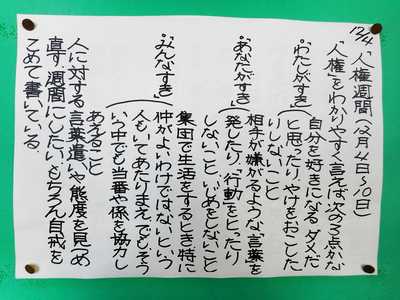 12/4 人権週間(12月4日～10日)
"人権"をわかりやすく言えば次の3点かな
"わたしがすき"
自分を好きになる ダメだ
と思ったり、やけをおこした
りしないこと
"あなたがすき"
相手が嫌がるような言葉を
発したり、行動をとったり
しないこと、いじめをしないこと
"みんなすき"
集団で生活をするとき特に
仲がよいわけではないという
人もいてあたりまえでも、そう
いう中でも当番や係を協力し
あえること
人に対する言葉遣いや態度を見つめ
直す週間にしたい。もちろん自戒を
こめて書いている。